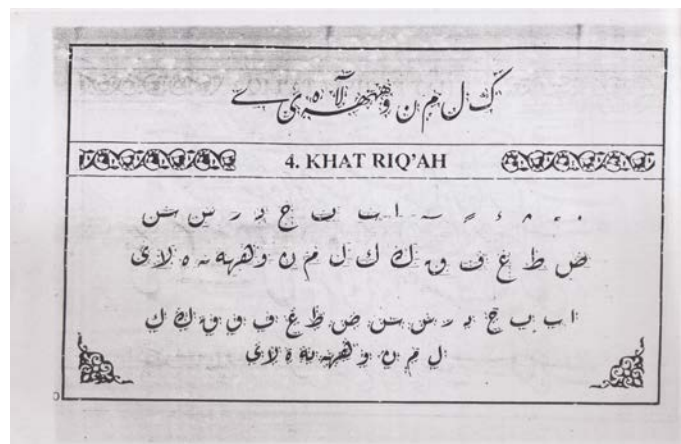 ک ل م ن و ه ه ه لآ ه ی ے
4. KHAT RIQ'AH
ا ب ب ج د ر س س
ص ط ع ف ق ك ك ل م ن و ه ه ه ه لا ى
ا ب ب ج د ر س س ص ط ع ف ق ق ك ك
ل م ن و ه ه ه ة لا ى